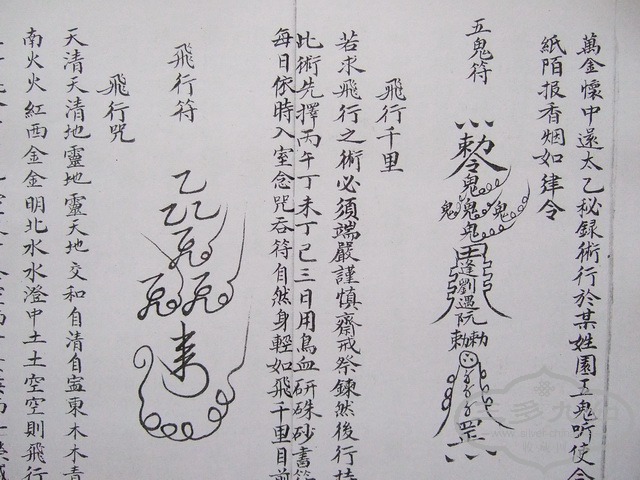 萬金懷中還太乙秘錄術行於某姓園五鬼听使令
紙陌报香烟如律令
五鬼符
敕令
鬼
鬼鬼鬼
鬼
田
逢劉遇阮
敕敕
罡
飛行千里
若求飛行之術必須端嚴謹慎齋戒祭鍊然後行持
此術先擇丙午丁未丁已三日用烏血研硃砂書符
每日依時入室念咒吞符自然身輕如飛千里目前
飛行符
飛行咒
天清天清地靈地靈天地交和自清自寍東木木青
南火火紅西金金明北水水澄中土土空空則飛行